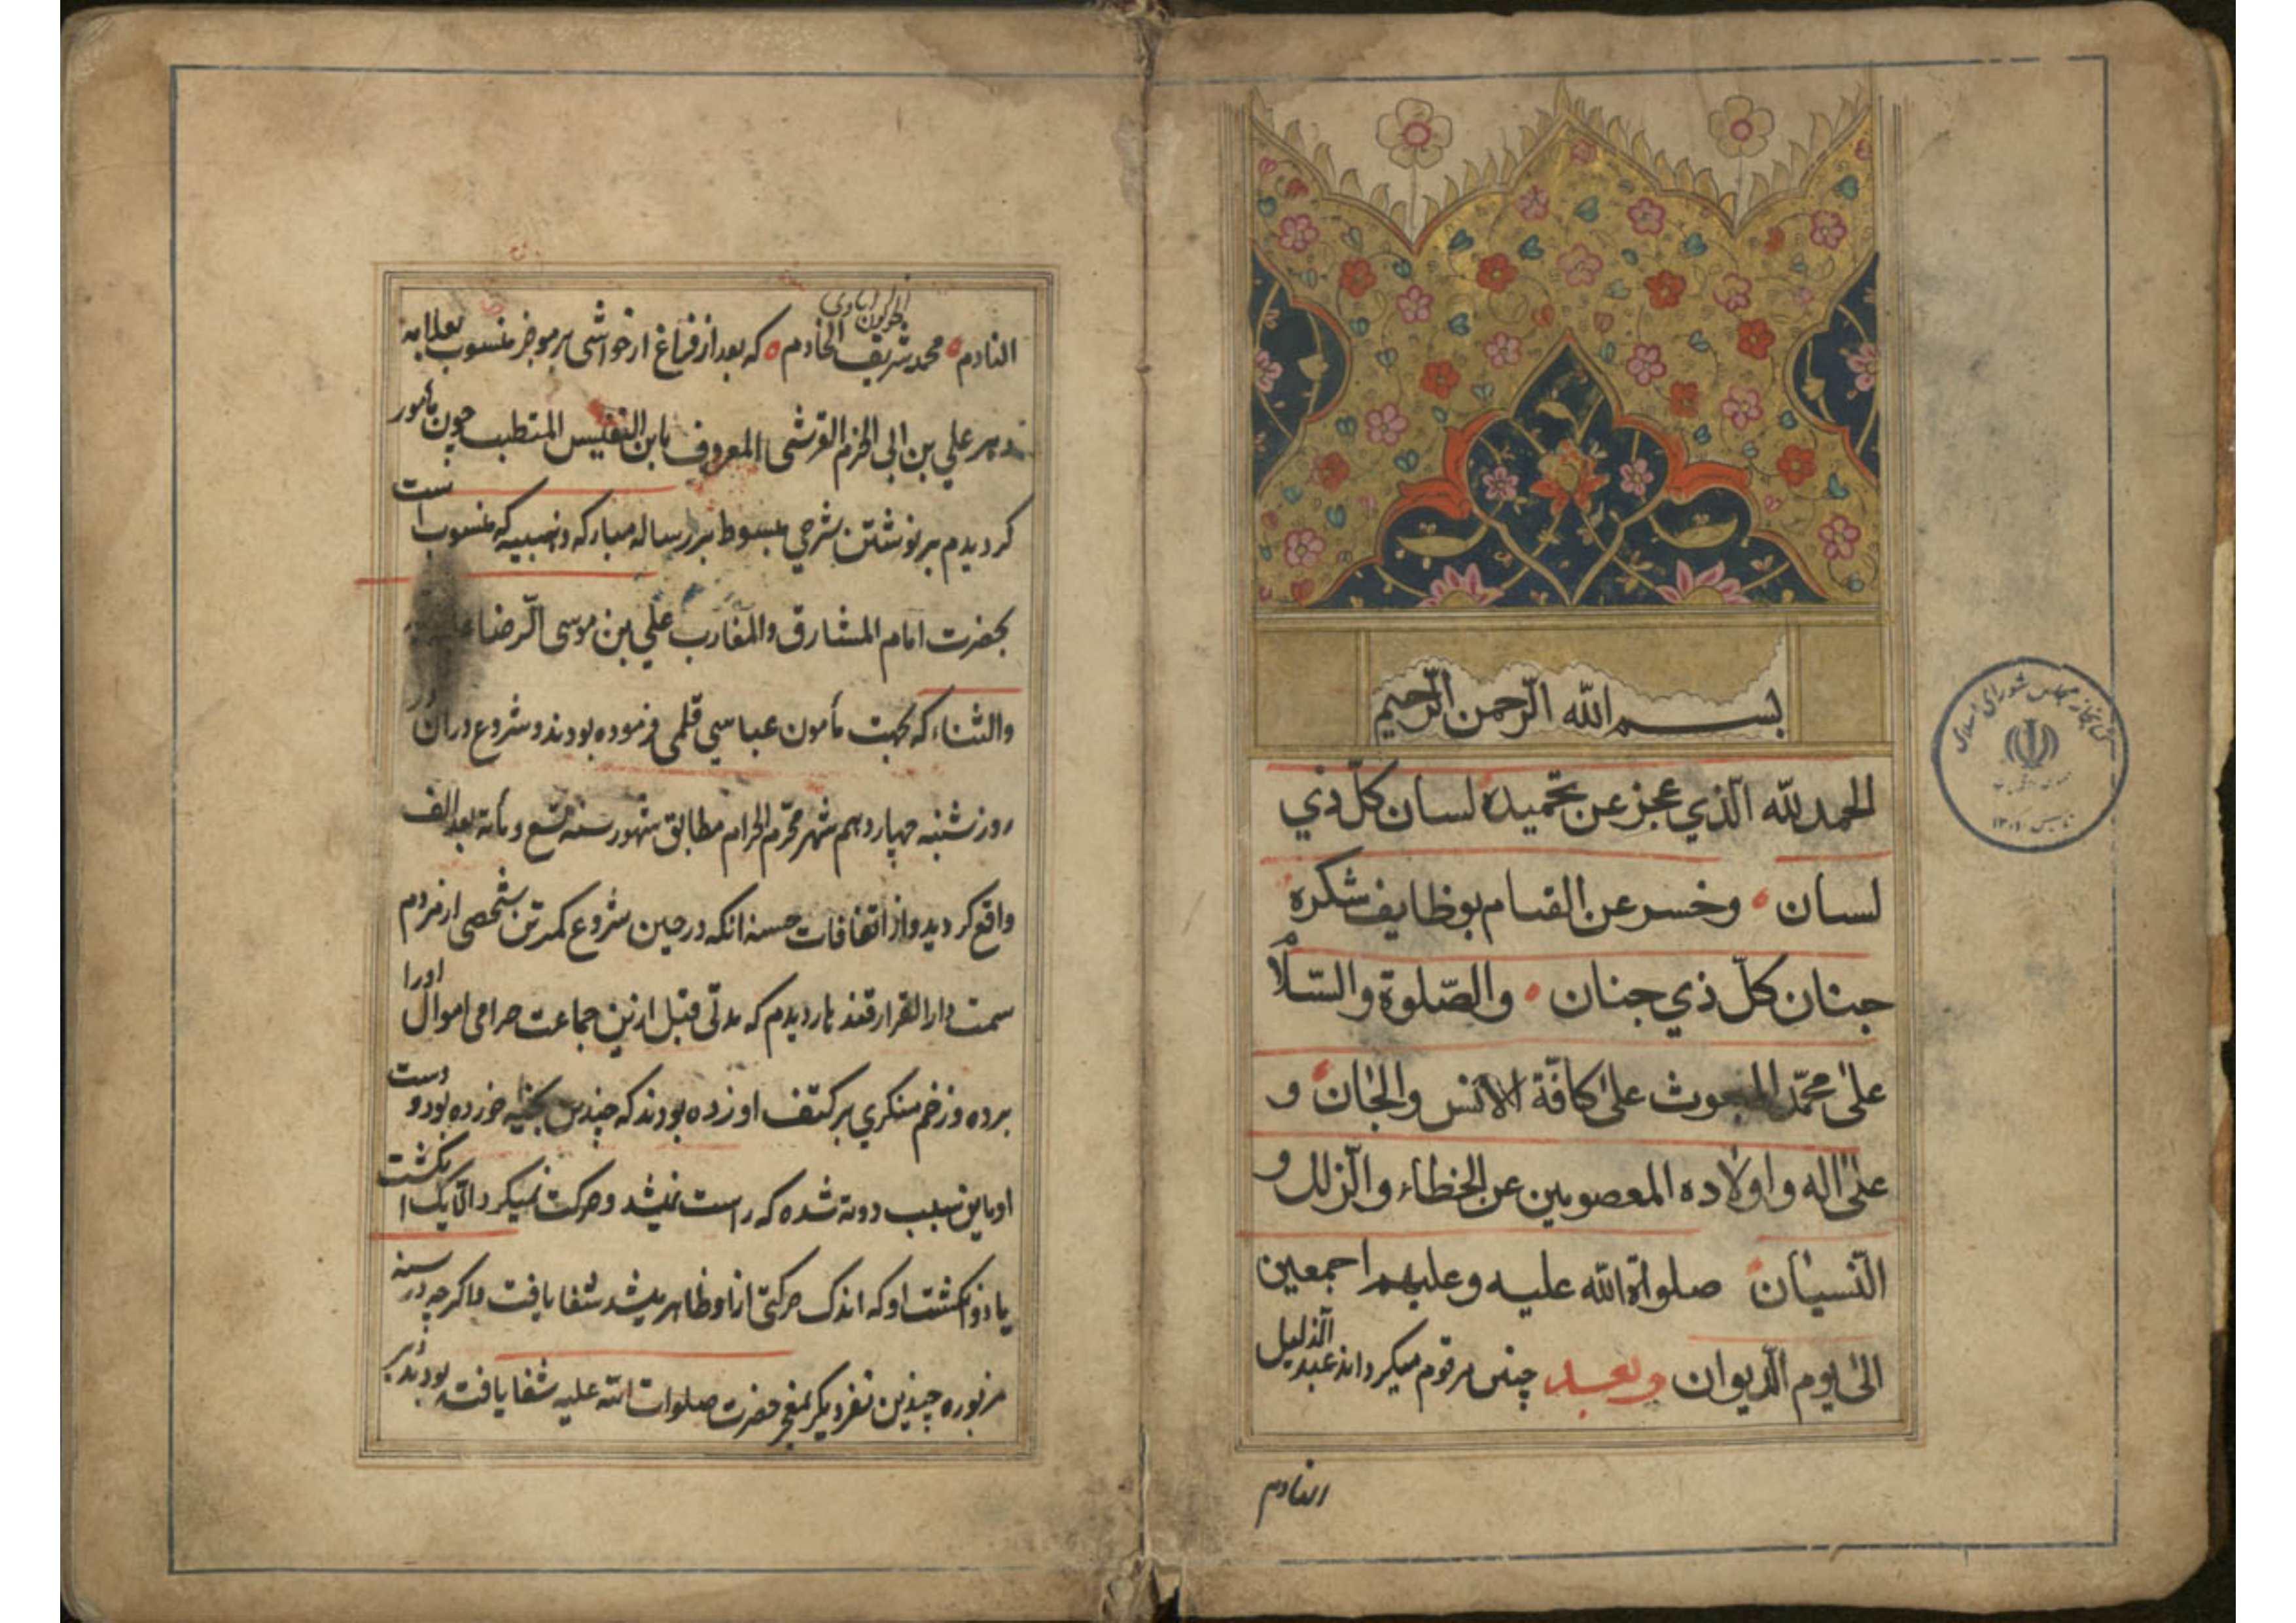 بسم الله الرّحمن الرّحيم
الحمد للّه الّذي عجز عن تحميده لسان كلّ ذي
لسان وخسر عن القيام بوظايف شكره
جنان كلّ ذي جنان والصّلوة والسّلام
على محمّد المبعوث على كافّة الانس والجان و
على اله و اولاده المعصومين عن الخطاء والزلل و
النّسيان صلواة اللّه عليه وعليهم اجمعين
الى يوم الدّيوان وبعد چنین مرقوم میگرداند عبد الذلیل
النادم
کتابخانه مجلس شورای اسلامی
النادم محمد شریف الخادم که بعد از فراغ از حواشی بر موجز منسوب بعلامه
دهر علی بن ابی الحزم القرشی المعروف بابن النفیس المتطبب چون مأمور
کردیدم بر نوشتن شرحی مبسوط بر رساله مبارکه ذهبیه که منسوب است
بحضرت امام المشارق والمغارب علی بن موسی الرّضا
والثناء که بجهت مأمون عباسی قلمی فرموده بودند و شروع دران در
روز شنبه چهاردهم شهر محرّم الحرام مطابق شهور سنه تسع و مأة بعد الف
واقع کردید و از اتفاقات حسنه انکه در حین شروع کمترین شخصی از مردم
سمت دار القرار قندهار دیدم که مدتی قبل ازین جماعت حرامی اموال اورا
برده و زخم منکری بر کتف او زده بودند که چندین بخیه خورده بود و دست
او باین سبب دوته شده که راست نمیشد و حرکت نمیکرد الّا یک انکشت
یا دو انکشت او که اندک حرکتی ازو ظاهر میشد شفا یافت و اکرچه در سنه
مزبوره چندین نفر دیکر حضرت صلوات الله علیه شفا یافته بودند